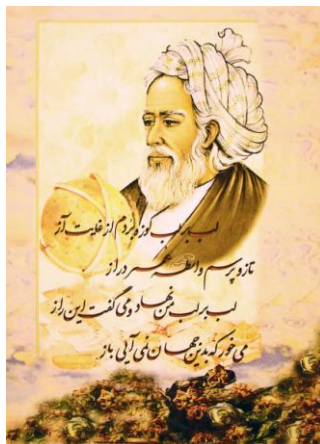 لب بر لب کوزه بردم از غایت آز
تا زو پرسم واسطه عمر دراز
لب بر لب من نهاد و می گفت این راز
می خور که بدین جهان نمی آیی باز